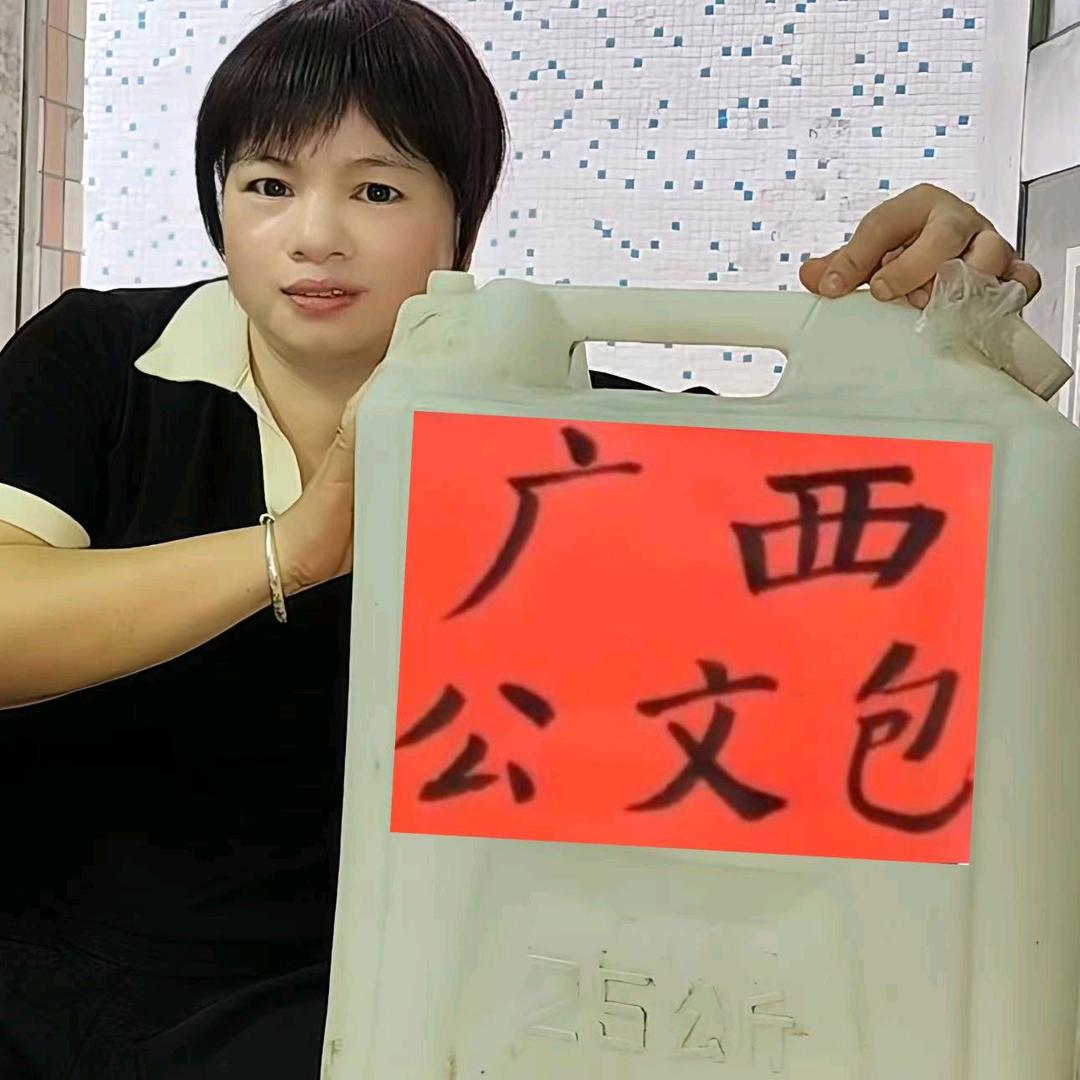 广西
公文包
25公斤